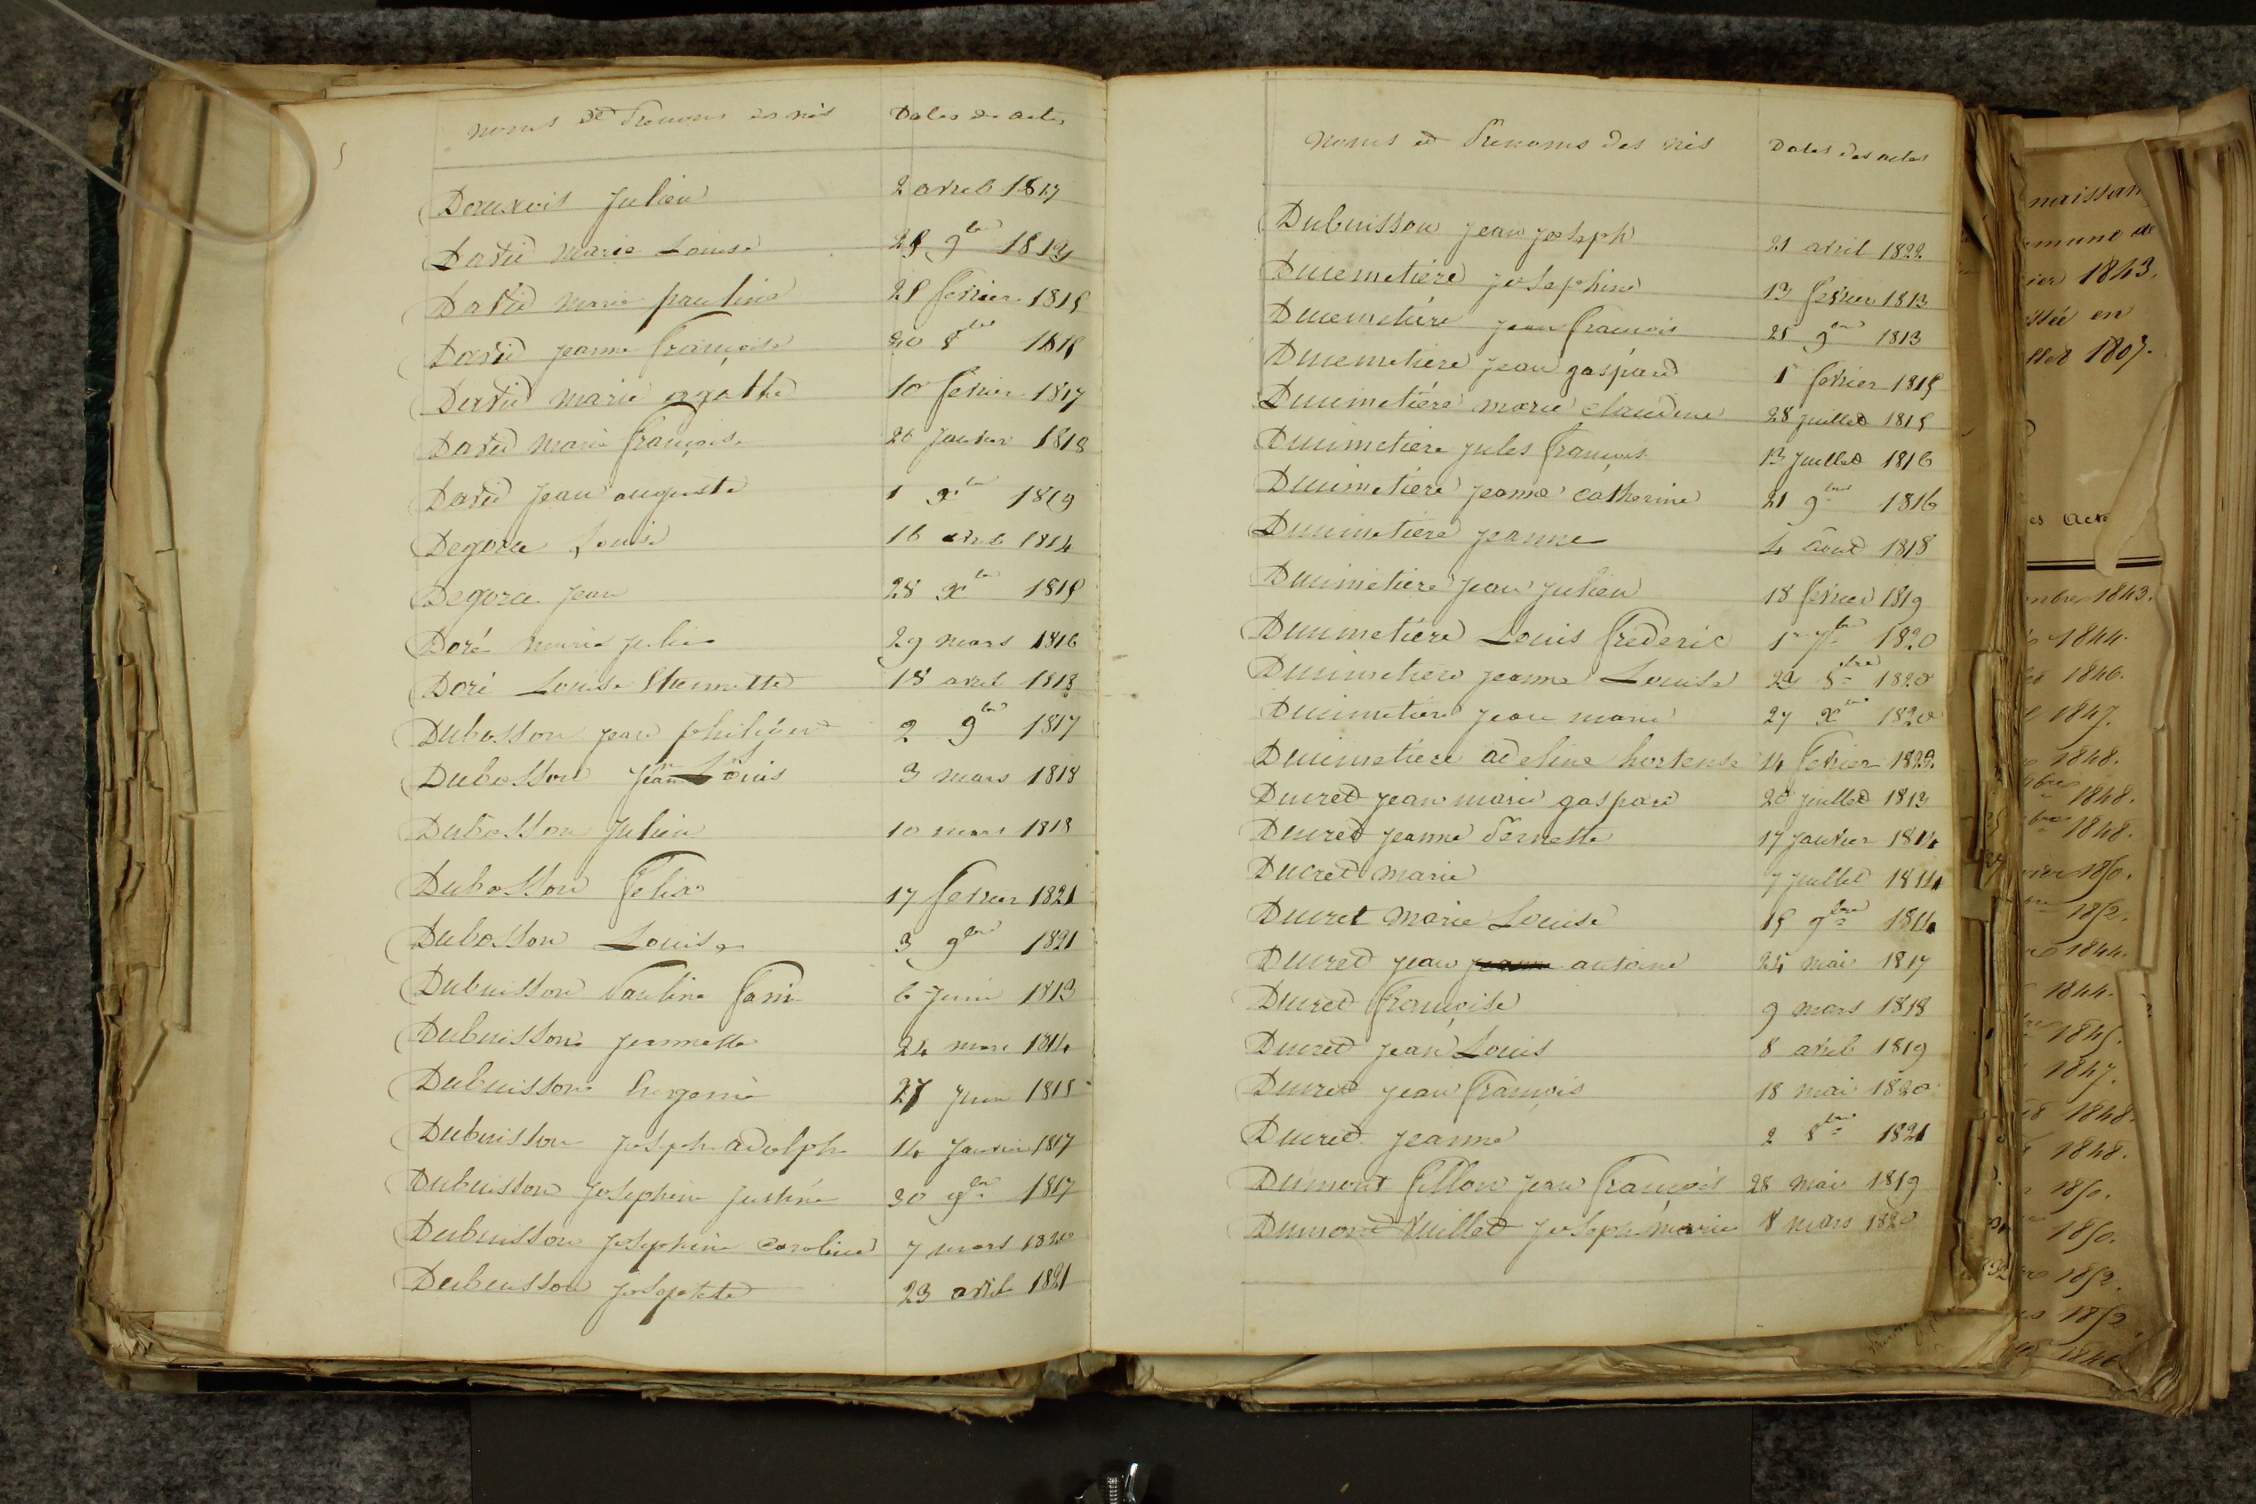 Noms et Prenoms des nés Dates des actes
Julien 2 avril 1817
David marie Louise 9bre
David marie pauline fevrier 1815
David jeanne françoise 30 8bre 1815
David marie agathe 10 fevrier 1817
David marie françoise 26 janvier 1818
David jean auguste 1 xbre 1819
Degora Louis 16 avril 1814
Degora jean 28 xbre 1815
Doré marie julie 29 mars 1816
Doré Louise 18 avril 1818
Dubosson jean 2 9bre 1817
Dubosson jean Louis 3 mars 1818
Dubosson julien 10 mars 1818
Dubosson felix 17 fevrier 1821
Dubosson Louise 3 9bre 1821
Dubuisson Pauline fani 6 juin 1813
Dubuisson jeannette 24 mars 1814
Dubuisson 27 juin 1815
Dubuisson joseph adolph 14 janvier 1817
Dubuisson josephine justine 30 9bre 1817
Dubuisson josephine caroline 7 mars 1820
Dubuisson 23 avril 1821
Noms et Prenoms des nés Dates des actes
Dubuisson jean joseph 21 avril 1822
Ducimetière josephine 13 fevrier 1813
Ducimetière jean françois 25 9bre 1813
Ducimetière jean gaspard 1r fevrier 1815
Ducimetière marie claudine 28 juillet 1815
Ducimetière jules françois 13 juillet 1816
Ducimetière jeanne catherine 21 9bre 1816
Ducimetière jeanne 4 aout 1818
Ducimetière jean julien 18 fevrier 1819
Ducimetière Louis frederic 1r 7bre 1820
Ducimetière jeanne Louise 29 8bre 1820
Ducimetière jean marie 27 xbre 1820
Ducimetière adeline hortense 14 fevrier 1822
Ducret jean marie gaspard 20 juillet 1813
Ducret jeanne Pernette 17 janvier 1814
Ducret marie 7 juillet 1814
Ducret marie Louise 15 9bre 1814
Ducret jean antoine 24 mai 1817
Ducret françoise 9 mars 1818
Ducret jean Louis 8 avril 1819
Ducret jean françois 18 mai 1820
Ducret jeanne 2 8bre 1821
Dumont fillon jean françois 28 mai 1819
Dumont Vuillet joseph marie 8 mars 1820
naissan
1843.
en
1807.
1843.
1844.
1846.
1847.
1848.
1848.
1848.
1850.
1852.
1844.
1844.
1845.
1847.
1848.
1848.
1850.
1850.
1852.
1852.